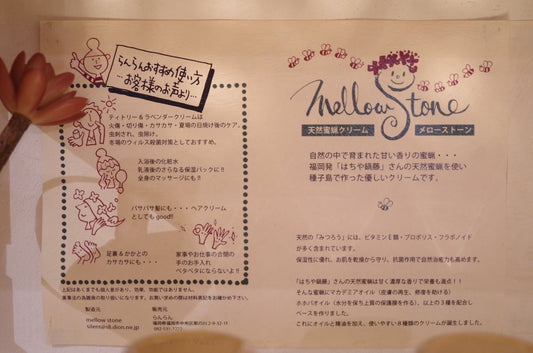 らんらんおすすめ使い方
…お客様のお声より…
ティートリー&ラベンダークリームは
火傷・切り傷・カサカサ・夏場の日焼け後のケア。
虫刺され、虫除け。
冬場のウィルス殺菌対策としておすすめ。
入浴後の化粧水
乳液後のさらなる保湿パックに!!
全身のマッサージにも!!
パサパサ髪にも・・・ヘアクリーム
としても good!!
足裏&かかとの
カサカサにも・・・
家事やお仕事の合間の
手のお手入れ
ベタベタにならないよ!!
上記はあくまでも個人差があり、効果、効能ではありません。
製造元
mellow stone
販売元
らんらん
Mellow Stone
天然蜜蝋クリーム メローストーン
自然の中で育まれた甘い香りの蜜蝋・・・
福岡発「はちや鍋藤」さんの天然蜜蝋を使い
種子島で作った優しいクリームです。
天然の「みつろう」には、ビタミンE類・プロポリス・フラボノイド
が多く含まれています。
保湿性に優れ、お肌を乾燥から守り、抗菌作用で自然治癒力も高めます。
「はちや鍋藤」さんの天然蜜蝋は甘く濃厚な香りで栄養も満点!!
そんな蜜蝋にマカダミアオイル(皮膚の再生、修復を助ける)
ホホバオイル(水分を保ち上質の保護膜を作る)、以上の3種を配合し
ベースを作りました。
これにオイルと精油を加え、使いやすい8種類のクリームが誕生しました。